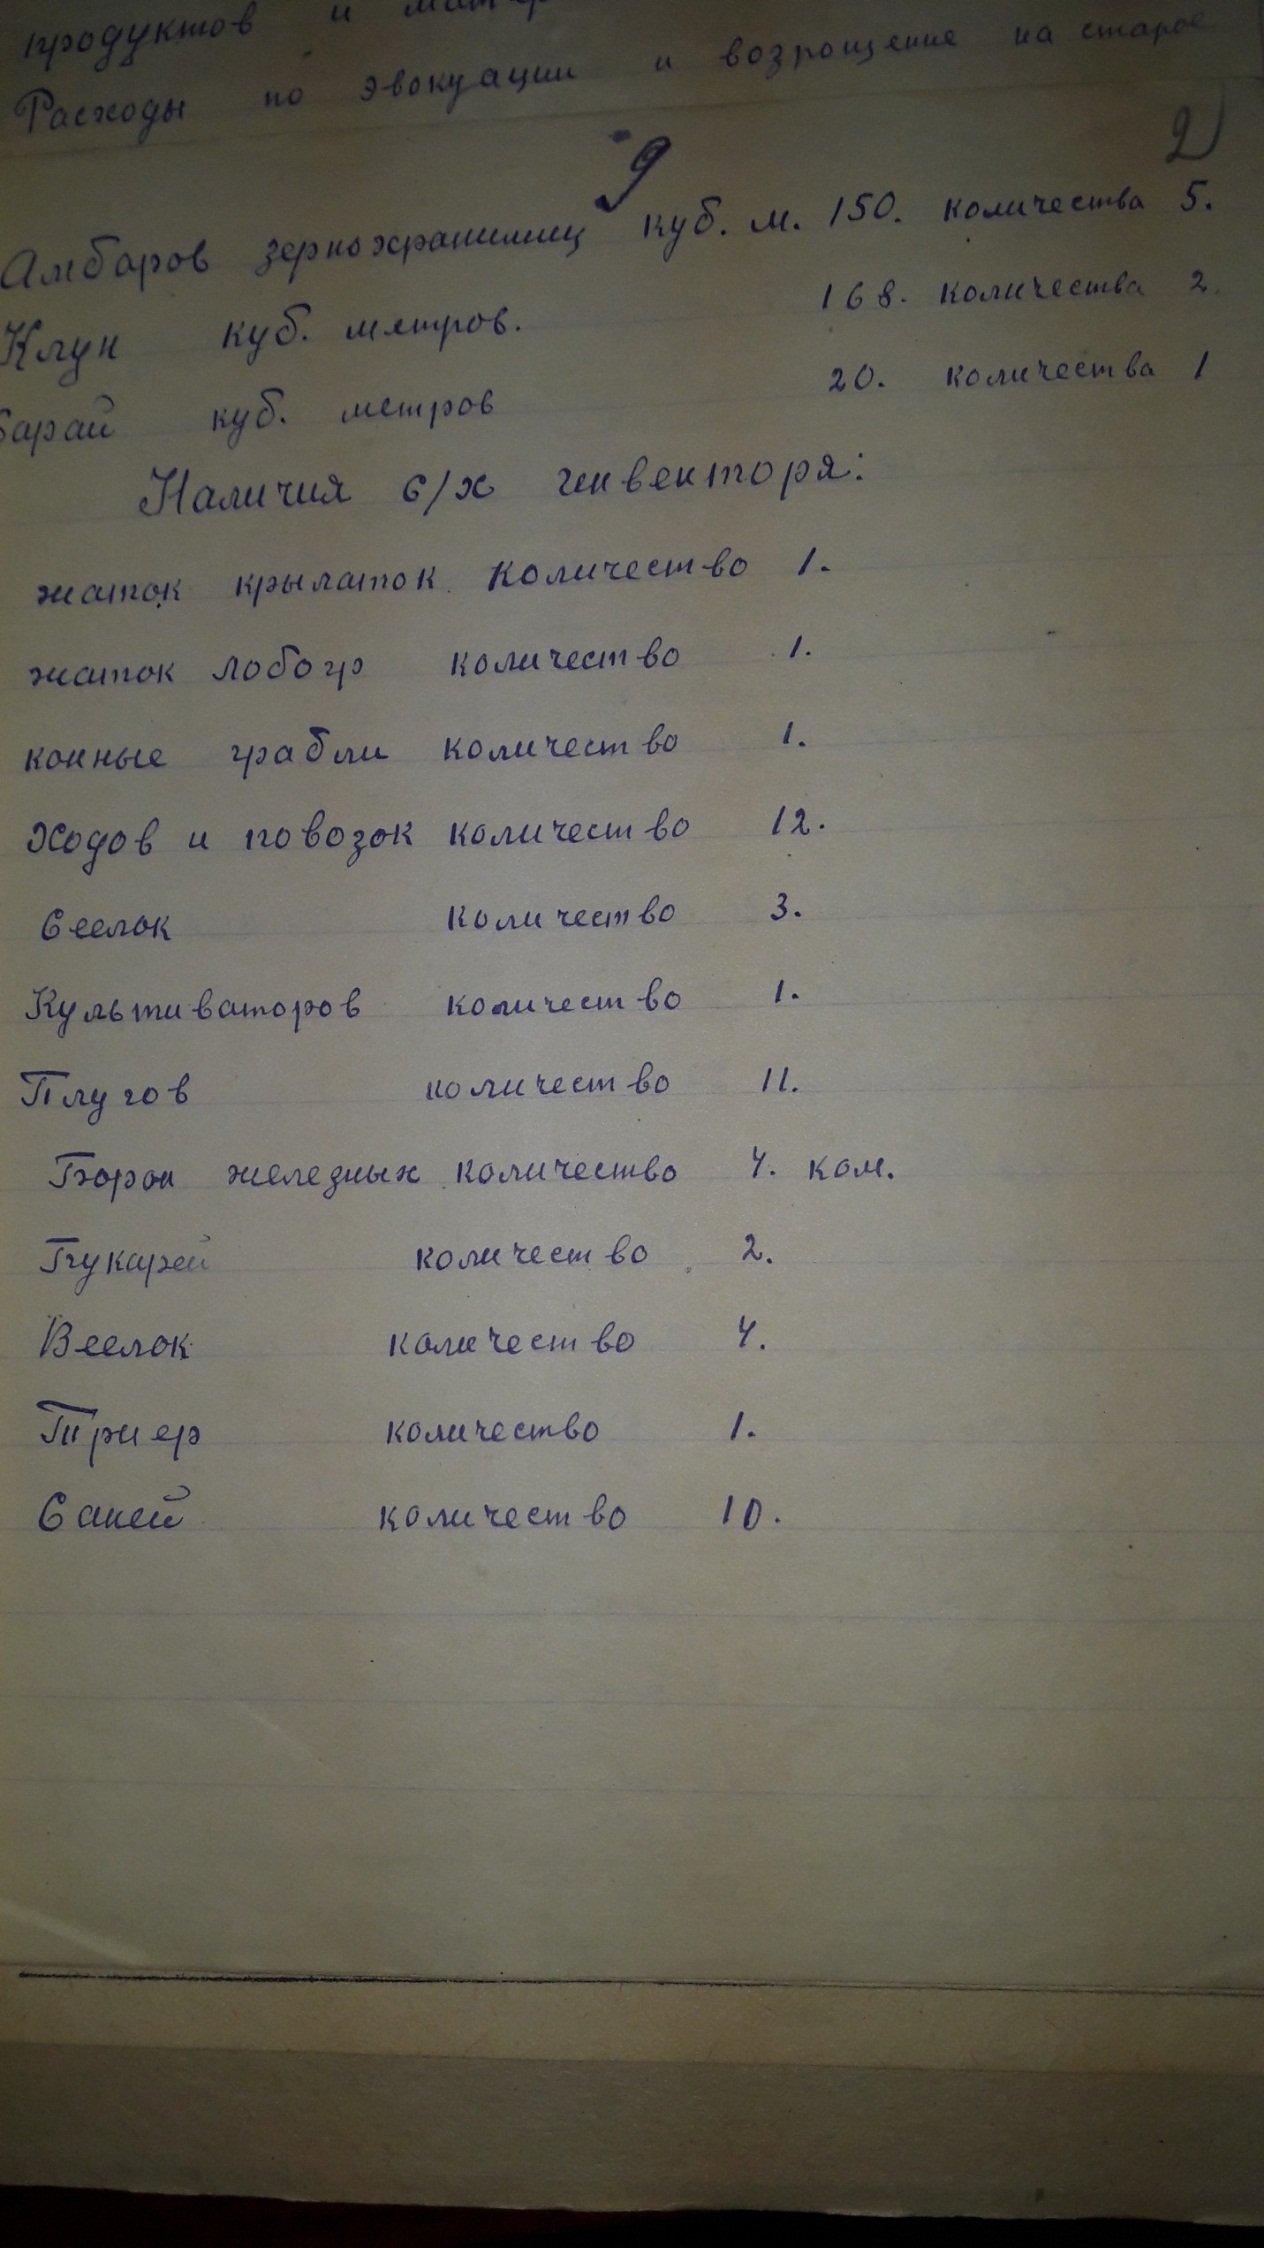 продуктов и матер
Расходы по эвокуации и возрощение на старое
9
2
Амбаров зернохранилищ куб. м. 150. количества 5.
Клун куб. метров. 168. количества 2.
Сарай куб. метров 20. количества 1
Наличия с/х инвенторя:
жаток крылаток количество 1.
жаток лобогр количество 1.
конные грабли количество 1.
Ходов и повозок количество 12.
Сеелок количество 3.
Культиваторов количество 1.
Плугов количество 11.
Борон железных количество 4. ком.
Букарей количество 2.
Веелок количество 4.
Триер количество 1.
Саней количество 10.